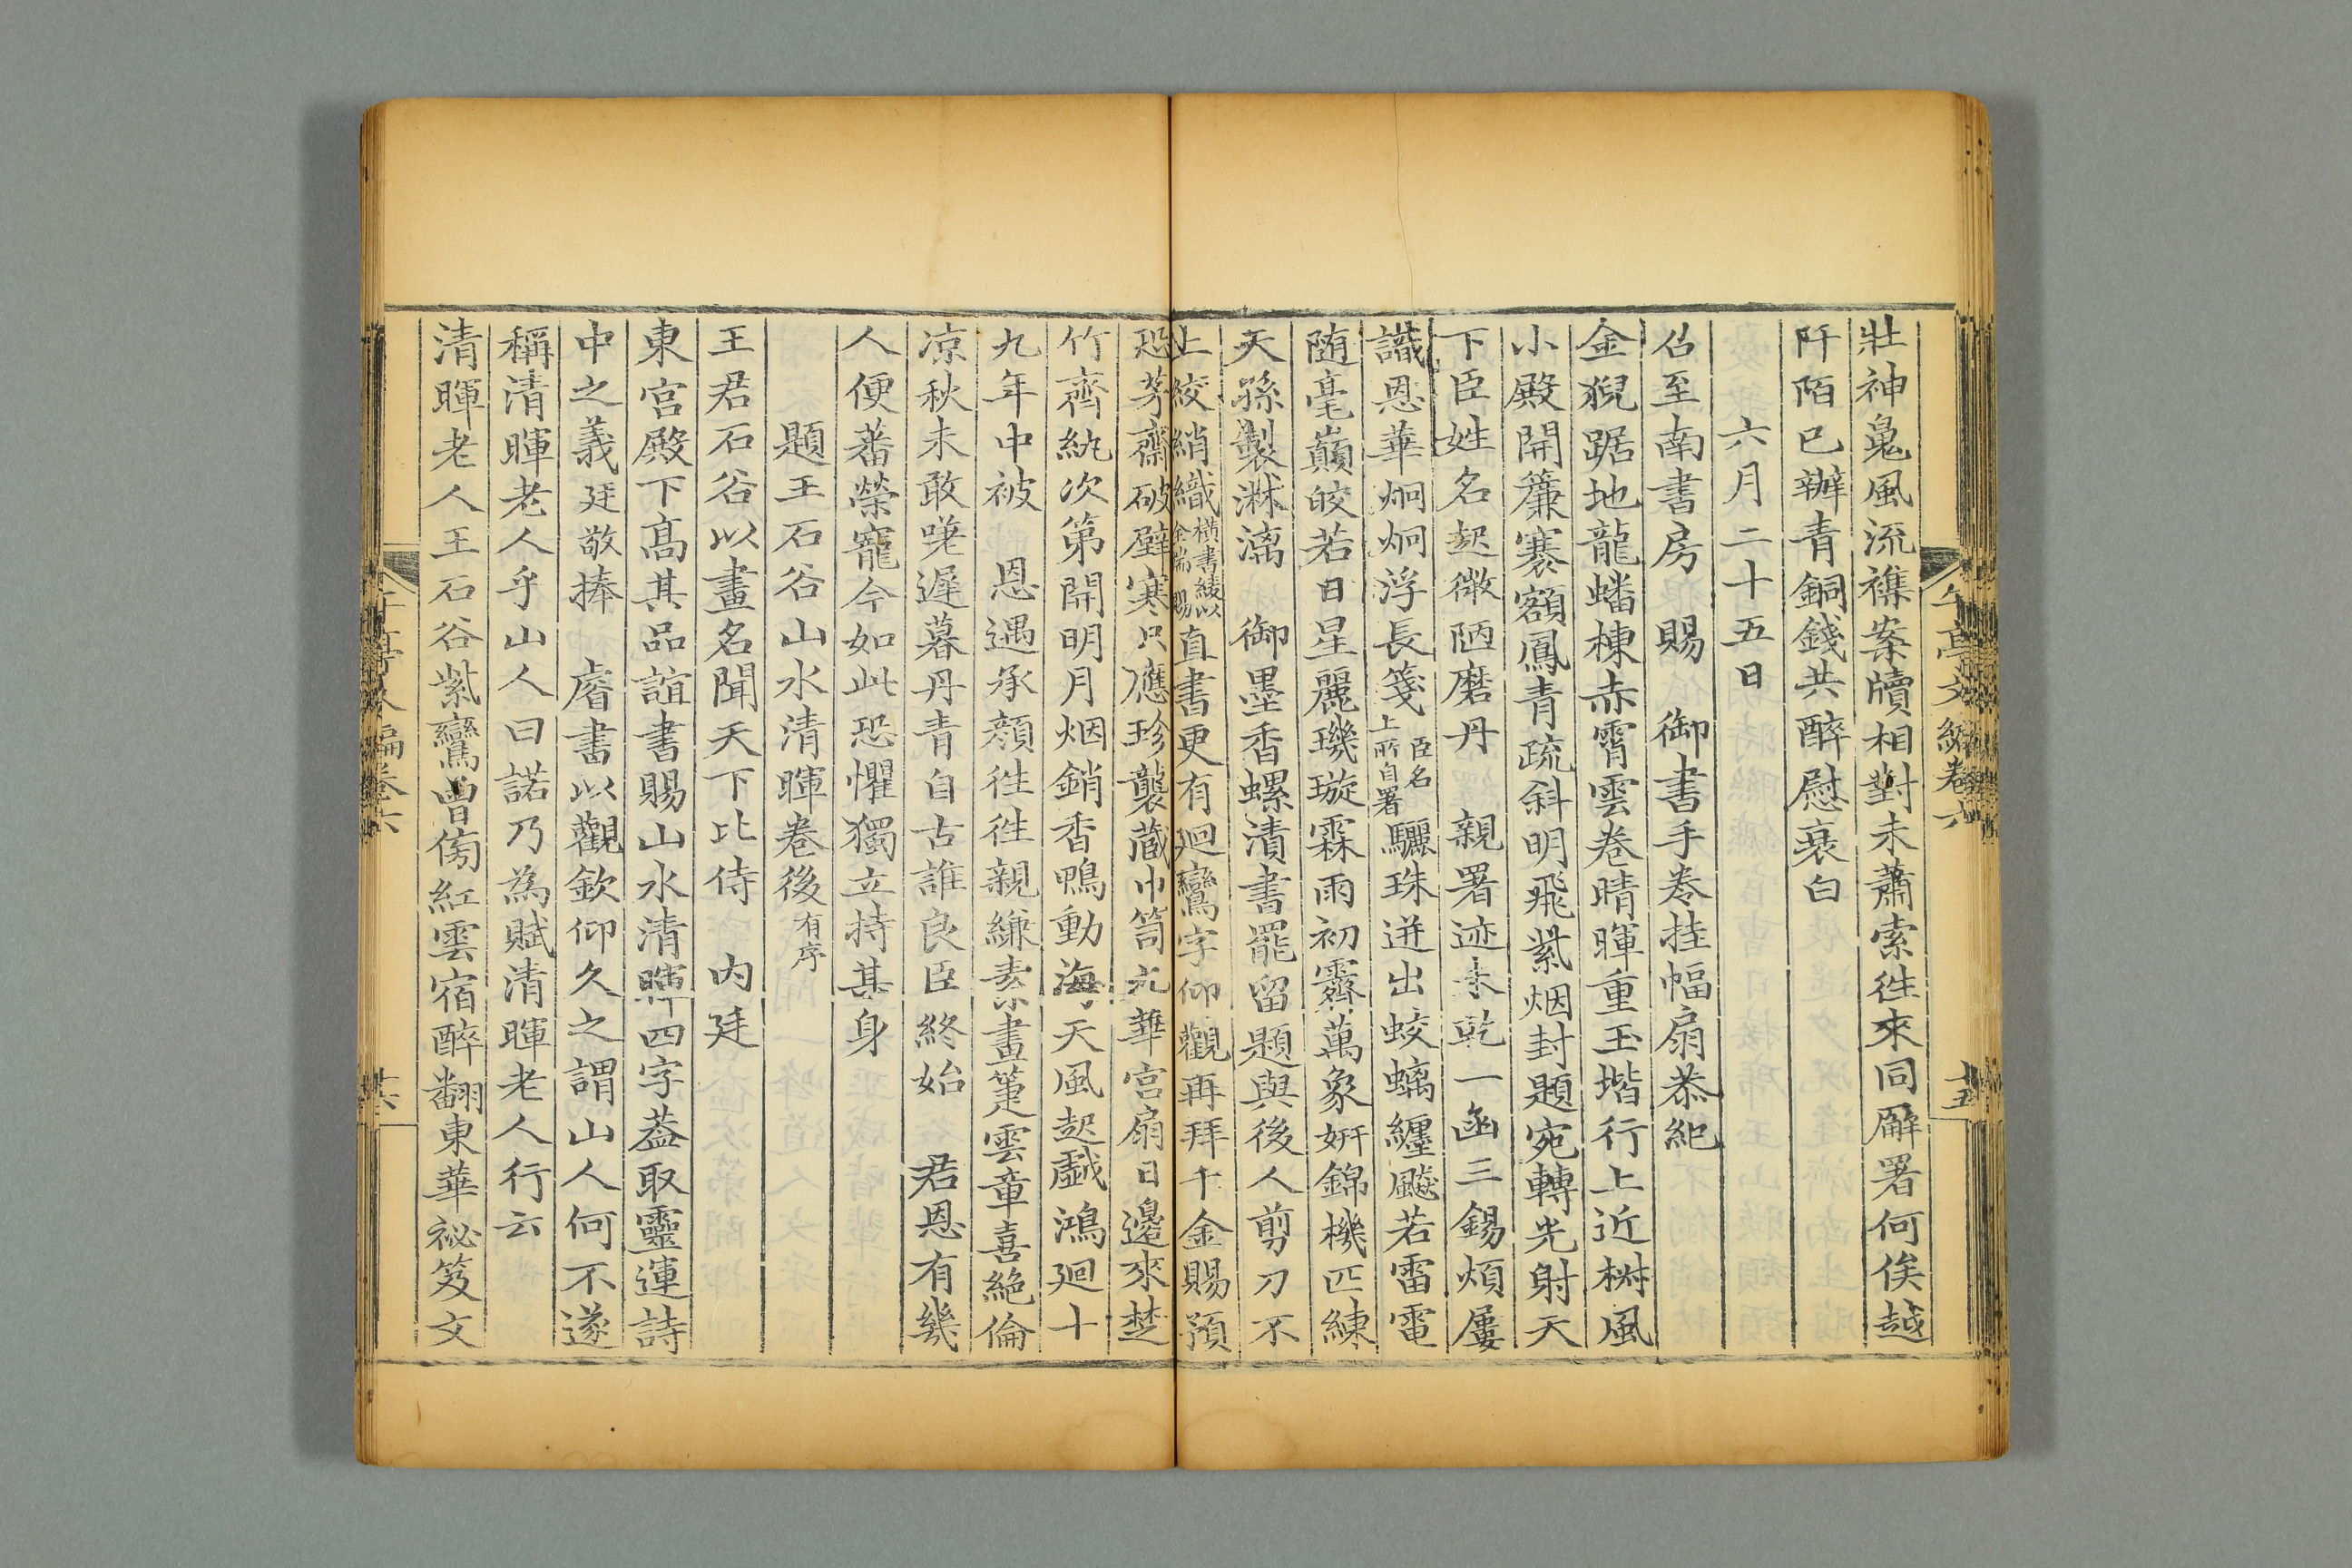 午亭文編卷六 十五
壯神鬼風流襍案牘相對未蕭索徃來同廨署何俟越
阡陌已辦青銅錢共醉慰衰白
六月二十五日
召至南書房 賜 御書手卷挂幅扇恭紀
金猊踞地龍蟠棟赤霄雲卷晴暉重玉堦行上近樹風
小殿開簾褰額鳳青疏斜明飛紫烟封題宛轉光射天
下臣姓名起微陋磨丹 親署迹未乾一函三錫煩屢
識恩華炯炯浮長箋臣名上所自署驪珠迸出蛟螭纏颷若雷電
随毫巔皎若日星麗璣璇霖雨初霽萬象妍錦機匹練
天孫製淋漓 御墨香螺漬書罷留題與後人剪刀不
上絞綃織橫書綾以全端賜直書更有廻鸞字仰觀再拜千金賜預
恐芳齋破壁寒只應珍襲蔵巾笥九華宮扇日邊來楚
竹齊紈次第開明月烟銷香鴨動海天風起戲鴻廻十
九年中被 恩遇承顏徃徃親縑素畫箑雲章喜絕倫
凉秋未敢嗟遲暮丹青自古誰良臣終始 君恩有幾
人便蕃榮寵今如此恐懼獨立持其身
題王石谷山水清暉卷後有序
王君石谷以畫名聞天下比侍 内廷
東宮殿下高其品誼書賜山水清暉四字葢取靈運詩
中之義廷敬捧 睿書以觀欽仰久之謂山人何不遂
稱清暉老人乎山人曰諾乃為賦清暉老人行云
清暉老人王石谷紫鸞曾傍紅雲宿醉翻東華祕笈文
午亭文編卷六 十六